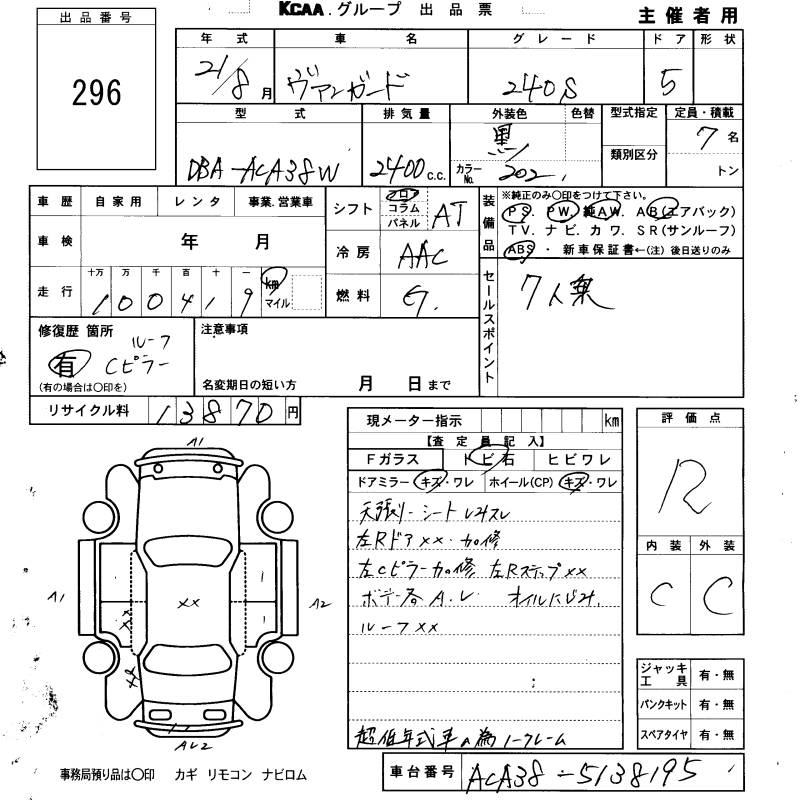 KCAA.グループ 出品票
主催者用
出品番号
296
年式 車名 グレード ドア 形状
21/8月 ヴァンガード 240S 5
型式 排気量 外装色 色替 型式指定 定員・積載
類別区分
DBA-ACA38W 2400c.c. 黒 カラーNo. 202 7名
トン
車歴 自家用 レンタ 事業.営業車
車検 年 月
走行 十万 万 千 百 十 一
100419 km マイル
シフト フロ コラム パネル AT
冷房 AAC
燃料 G.
装備品
※純正のみ○印をつけて下さい。
PS. PW. 純AW. AB(エアバック)
TV. ナビ. カワ. SR(サンルーフ)
ABS ・ 新車保証書←(注)後日送りのみ
セールスポイント
7人乗
修復歴 箇所
有 ルーフ
Cピラー
(有の場合は○印を)
注意事項
名変期日の短い方 月 日まで
リサイクル料 13870円
現メーター指示 km
【査定員記入】
Fガラス トビ石 ヒビワレ
ドアミラー キズ・ワレ ホイール(CP) キズ・ワレ
天張り シート
左Rドア××・加修
左Cピラー加修 左Rステップ××
ボデー各A.U オイルにじみ.
ルーフ××
超低年式車の為ノークレーム
評価点
R
内装 外装
C C
ジャッキ工具 有・無
パンクキット 有・無
スペアタイヤ 有・無
A1
A1
××
××
A2
AU2
事務局預り品は○印 カギ リモコン ナビロム
車台番号 ACA38-5138195